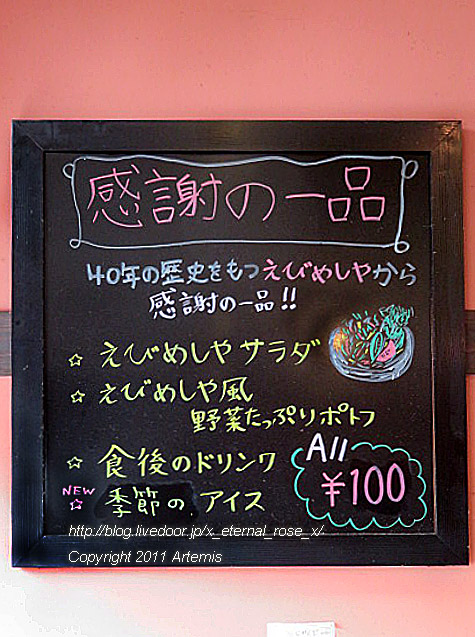 感謝の一品
40年の歴史をもつえびめしやから
感謝の一品!!
☆ えびめしやサラダ
☆ えびめしや風
野菜たっぷりポトフ
☆ 食後のドリンク
NEW
☆ 季節の アイス
All
¥100
http://blog.livedoor.jp/x_eternal_rose_x/
Copyright 2011 Artemis